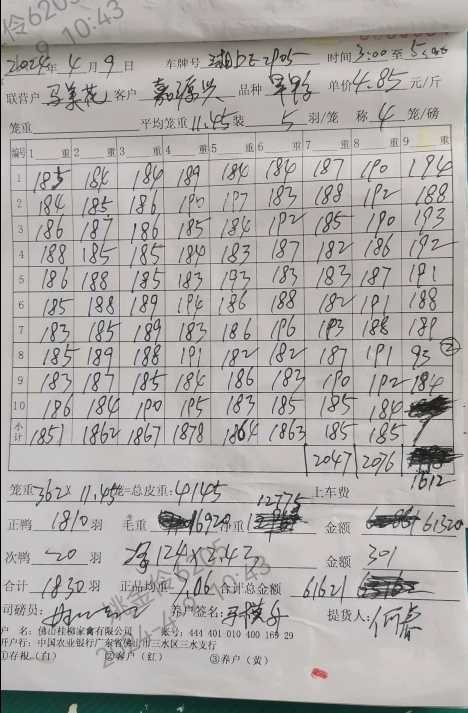 10:43
2024年 4月 9日 车牌号 时间 3:00 至 5:00
联营户 马美花 客户 嘉源兴 品种 单价 4.85 元/斤
笼重 平均笼重 11.45 装 5 羽/笼 称 4 笼/磅
编号 1 重 2 重 3 重 4 重 5 重 6 重 7 重 8 重 9 重
1 185 184 184 189 184 184 187 190 194
2 184 185 186 190 197 183 188 192 188
3 186 187 186 185 184 192 185 190 193
4 188 185 185 184 183 187 182 186 192
5 186 188 185 183 193 183 183 187 191
6 185 188 189 194 186 188 182 191 188
7 183 185 189 183 186 196 193 188 189
8 185 189 188 191 182 182 187 191 93 ②
9 183 187 185 184 186 183 190 192 184
10 186 184 190 195 183 185 185 184
小计 1851 1862 1867 1878 1864 1863 185 185
2047 2076
1612
笼重 362 × 11.45 笼=总皮重: 4145 上车费
12775
正鸭 1810 羽 毛重 16920 净重 金额 61320
次鸭 20 羽 124×2.43 金额 301
合计 1830 羽 正品均重 7.06 合计总金额 61621
司磅员: 养户签名: 提货人:
户 名: 佛山桂柳家禽有限公司 账号: 444 401 010 400 169 29
开户行: 中国农业银行广东省佛山市三水区三水支行
①存根(白) ②客户(红) ③养户(黄)